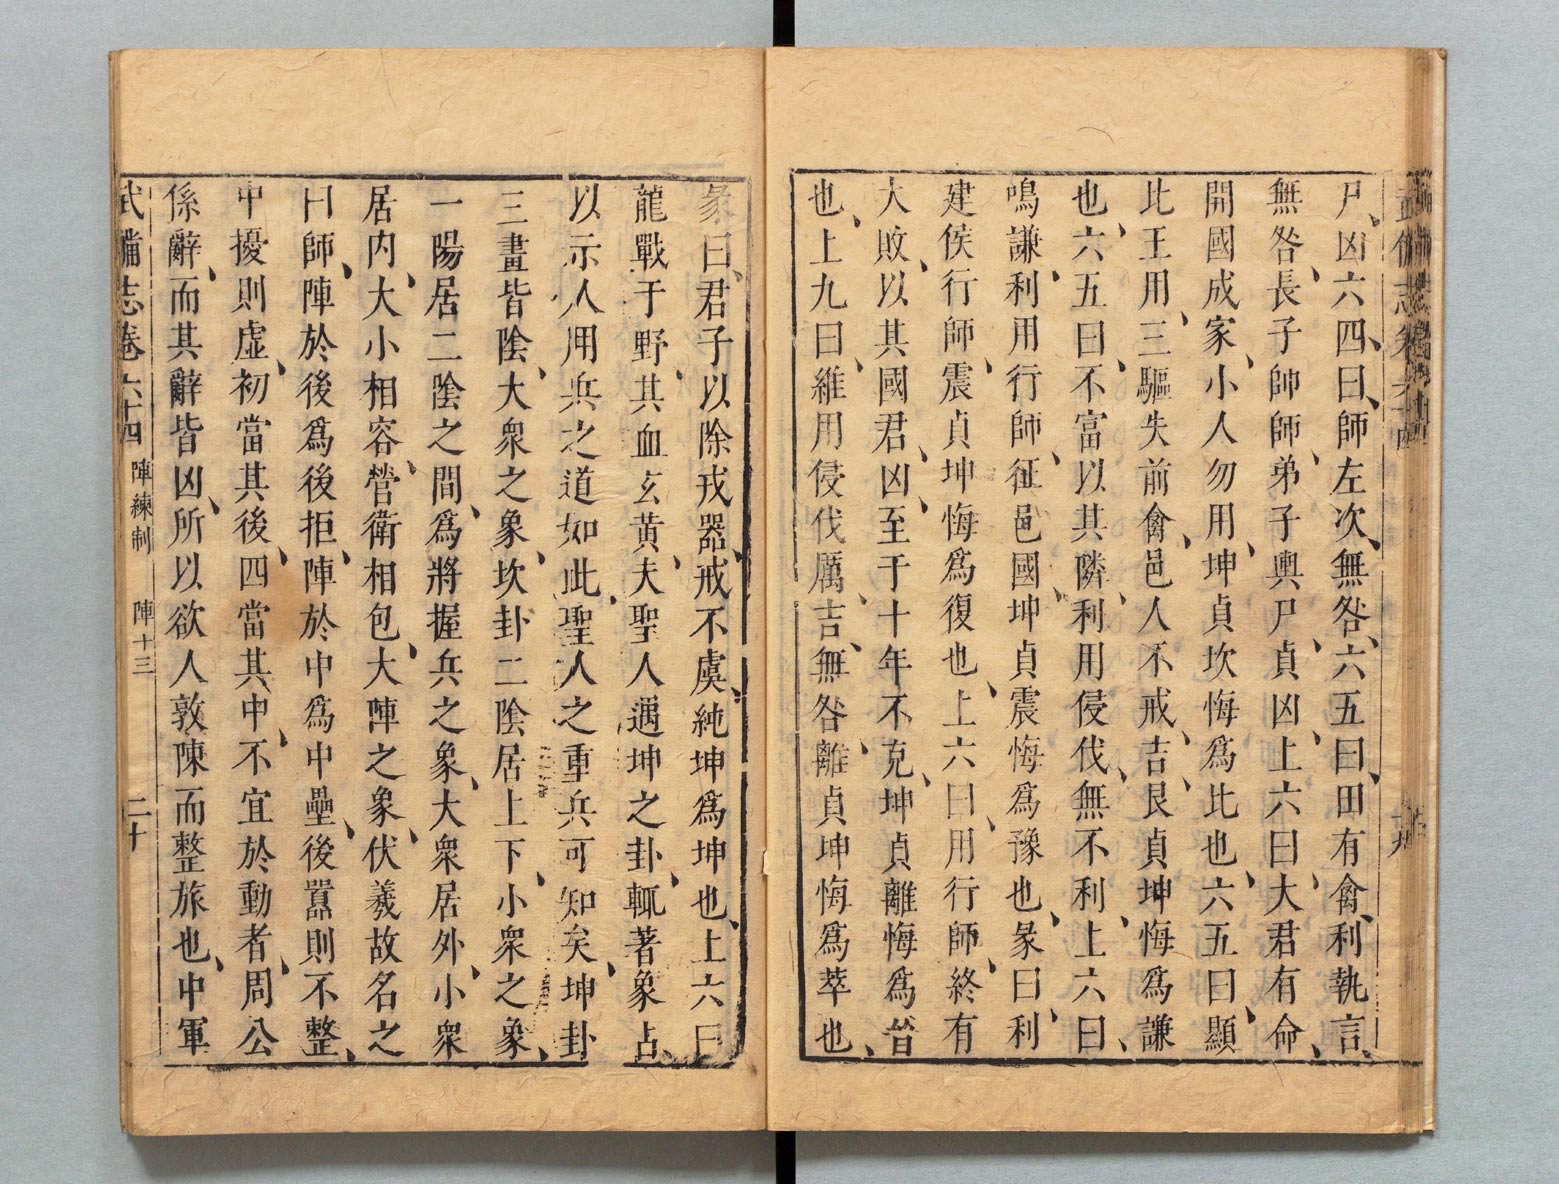 尸、凶六四、曰、師左次、無咎、六五曰、田有禽、利執言、
無咎、長子帥師、弟子輿尸、貞凶、上六曰、大君有命、
開國成家、小人勿用、坤貞坎悔爲比也、六五曰、顯
比王用、三驅失前禽、邑人不戒、吉、艮貞坤悔爲謙
也、六五曰、不富以其隣、利用侵伐、無不利、上六曰、
鳴謙、利用行師、征邑國、坤貞震悔爲豫也、彖曰、利
建侯行師、震貞坤悔爲復也、上六曰、用行師、終有
大敗、以其國君、凶、至于十年不克、坤貞離悔爲晉
也、上九曰、維用侵伐厲、吉、無咎、離貞坤悔爲萃也、
彖曰、君子以除戎器、戒不虞、純坤爲坤也、上六曰
龍戰于野、其血玄黃、夫聖人遇坤之卦、輒著象占、
以示人用兵之道如此、聖人之重兵可知矣、坤卦
三畫皆陰、大衆之象、坎卦二陰居上下、小衆之象、
一陽居二陰之間、爲將握兵之象、大衆居外、小衆
居内、大小相容、營衛相包、大陣之象、伏羲故名之
曰師、陣於後爲後拒、陣於中爲中壘、後囂則不整、
中擾則虛、初當其後、四當其中、不宜於動者、周公
係辭、而其辭皆凶、所以欲人敦陳而整旅也、中軍
武備志卷六十四 陣練制 陣十三 二十